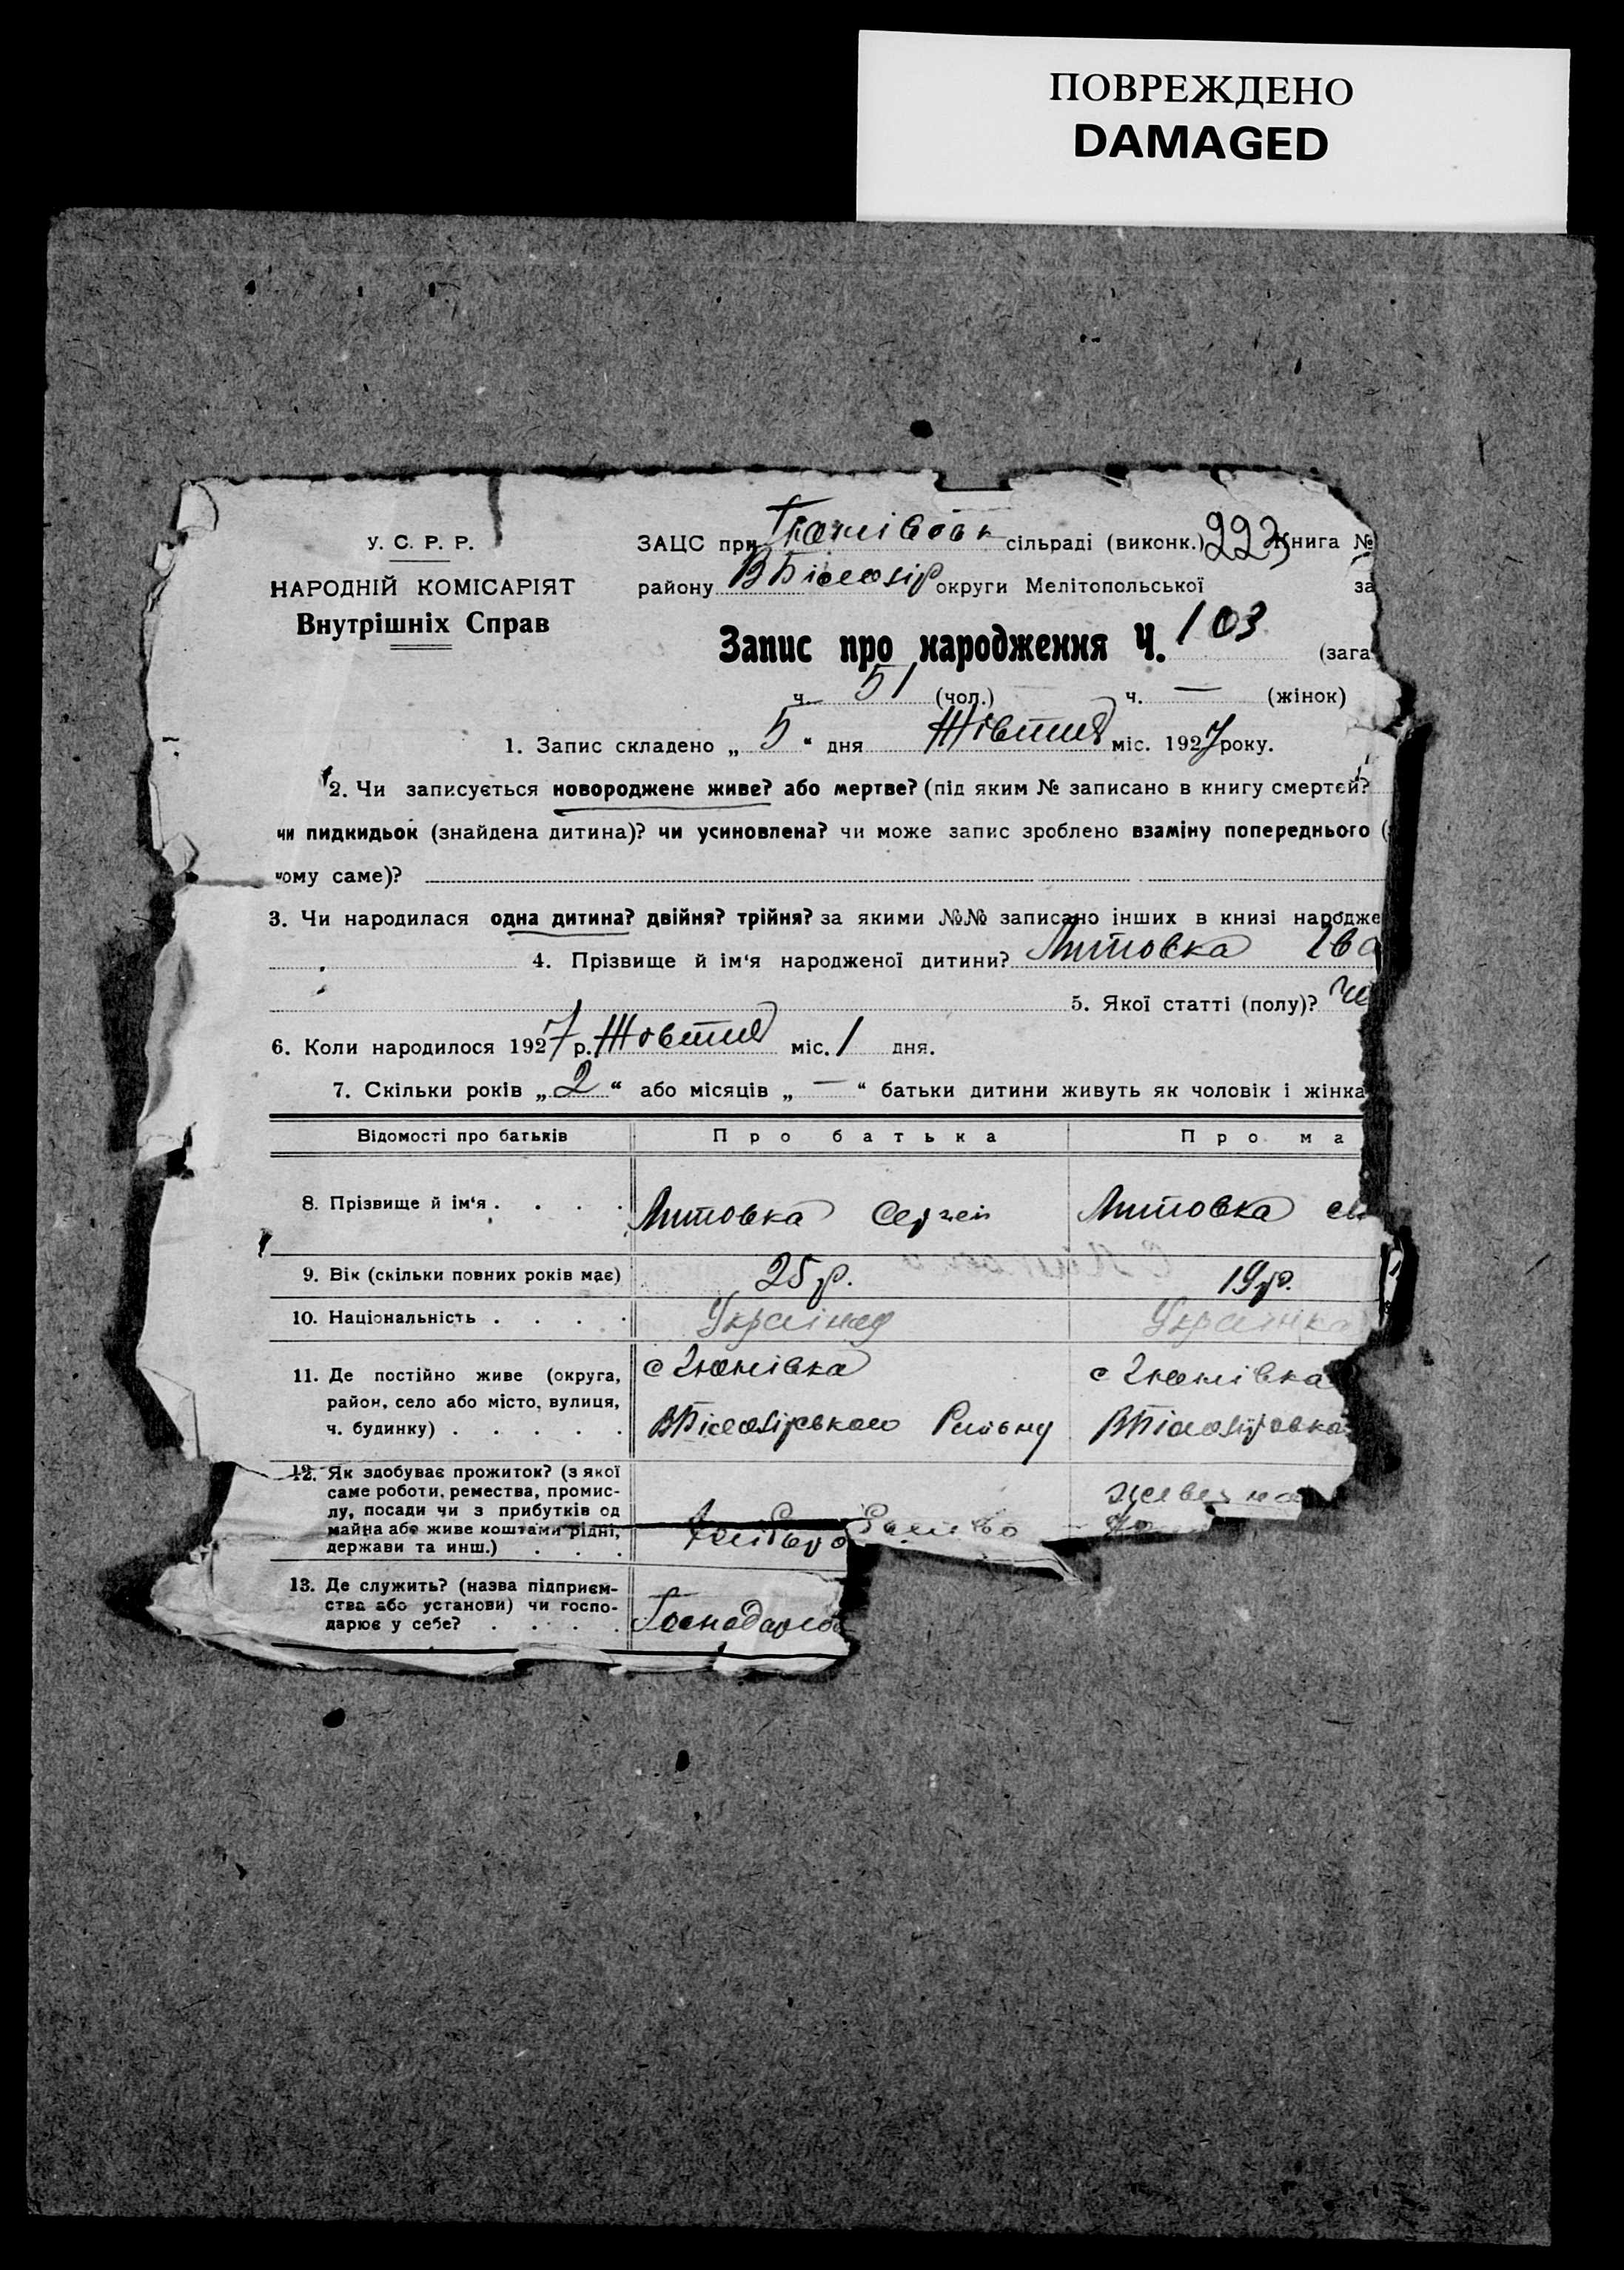 ПОВРЕЖДЕНО
DAMAGED
У. С. Р. Р.
НАРОДНІЙ КОМІСАРІЯТ
Внутрішніх Справ
ЗАЦС при сільраді (виконк.) 223 Книга №
району округи Мелітопольської за
Запис про народження Ч. 103 (зага
ч. 51 (чол.) ч. — (жінок)
1. Запис складено „ 5 “ дня Жовтня міс. 1927 року.
2. Чи записується новороджене живе? або мертве? (під яким № записано в книгу смертей?
чи пидкидьок (знайдена дитина)? чи усиновлена? чи може запис зроблено взаміну попереднього (
чому саме)?
3. Чи народилася одна дитина? двійня? трійня? за якими №№ записано інших в книзі народже
4. Прізвище й ім‘я народженої дитини? Литовка Іва
5. Якої статті (полу)? ч
6. Коли народилося 1927 р. Жовтня міс. 1 дня.
7. Скільки років „ 2 “ або місяців „ — “ батьки дитини живуть як чоловік і жінка
Відомості про батьків Про батька Про ма
8. Прізвище й ім‘я . . . . Литовка Сергей Литовка
9. Вік (скільки повних років має) 25 р. 19 р.
10. Національність . . . . Українец Українка
11. Де постійно живе (округа,
район, село або місто, вулиця,
ч. будинку) . . . . .
12. Як здобуває прожиток? (з якої
саме роботи, ремества, промис-
лу, посади чи з прибутків од
майна або живе коштами рідні,
держави та инш.) . . .
13. Де служить? (назва підприєм-
ства або установи) чи госпо-
дарює у себе? . . . . Господарює